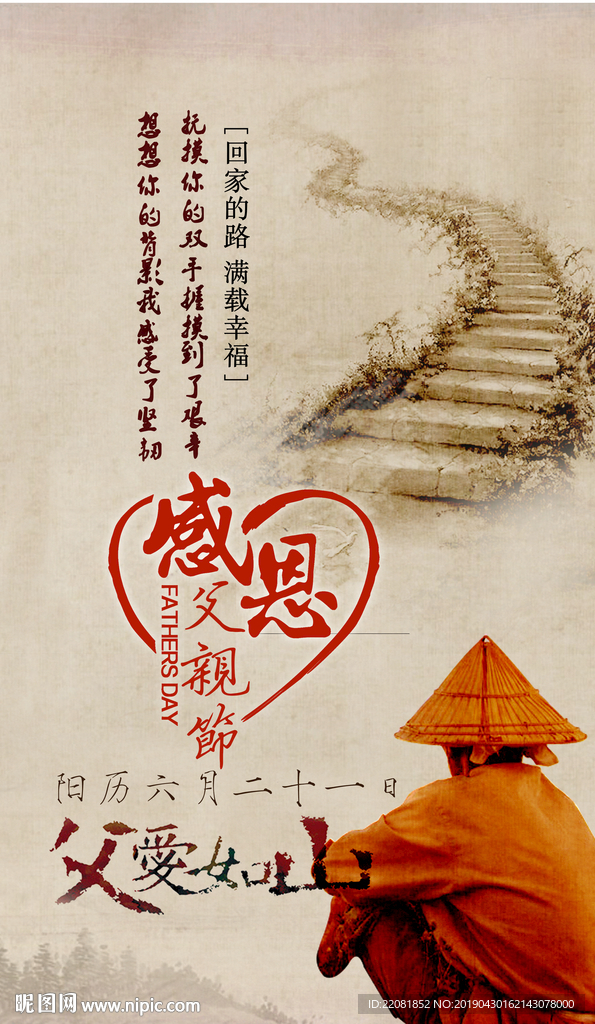 [回家的路 满载幸福]
抚摸你的双手握摸到了艰辛
想想你的背影我感受了坚韧
感恩
父親節
FATHERS DAY
阳历六月二十一日
父愛如山
昵图网 www.nipic.com
ID:22081852 NO:20190430162143078000